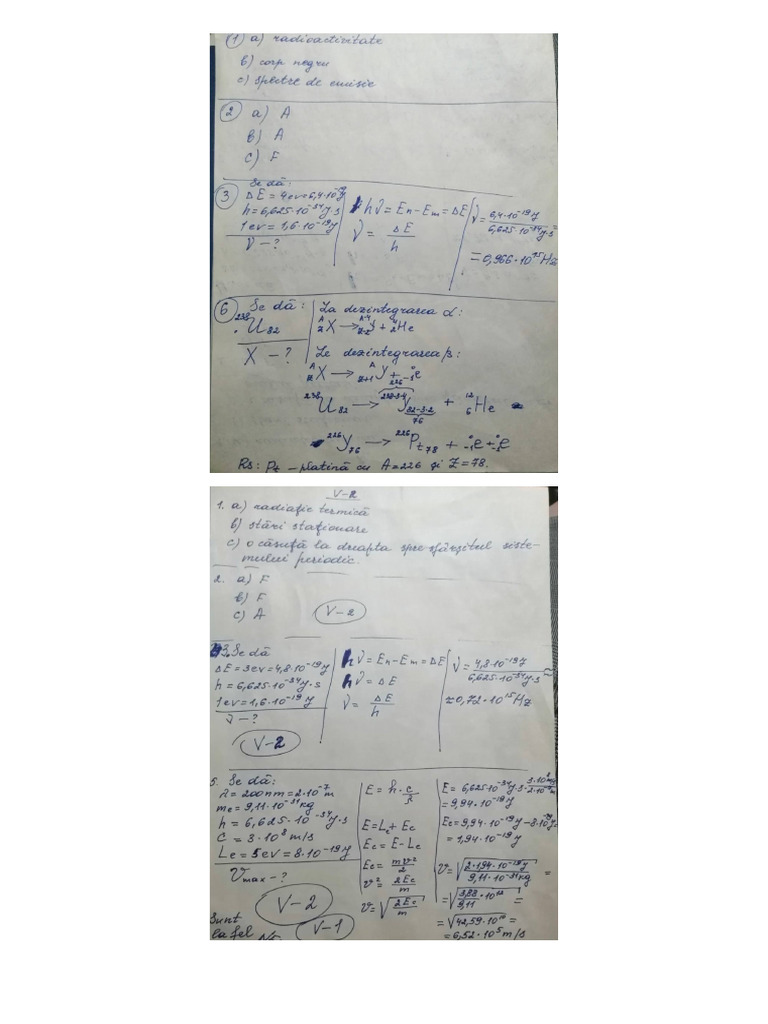 1 a) radioactivitate
b) corp negru
c) spectre de emisie
2 a) A
b) A
c) F
3 Se dă:
ΔE = 4ev = 6,4·10⁻¹⁹ J
h = 6,625·10⁻³⁴ J·s
1ev = 1,6·10⁻¹⁹ J
ν - ?
hν = En - Em = ΔE
ν = ΔE/h
ν = 6,4·10⁻¹⁹ J / 6,625·10⁻³⁴ J·s =
= 0,966·10¹⁵ Hz
6 Se dă:
²³⁸U₈₂
X - ?
La dezintegrarea α:
ᴬ_Z X → ᴬ⁻⁴_Z-2 Y + ⁴₂He
La dezintegrarea β:
ᴬ_Z X → ᴬ_Z+1 Y + ⁰₋₁e
226
²³⁸U₈₂ → ²³⁸⁻³·⁴Y₈₂₋₃·₂ + ¹²₆He
76
²²⁶Y₇₆ → ²²⁶Pt₇₈ + ⁰₋₁e + ⁰₋₁e
Rs: Pt - platină cu A = 226 și Z = 78.
V-2
1. a) radiație termică
b) stări staționare
c) o căsuță la dreapta spre sfârșitul siste-
mului periodic.
2. a) F
b) F
c) A
V-2
3. Se dă
ΔE = 3ev = 4,8·10⁻¹⁹ J
h = 6,625·10⁻³⁴ J·s
1ev = 1,6·10⁻¹⁹ J
ν - ?
V-2
hν = En - Em = ΔE
hν = ΔE
ν = ΔE/h
ν = 4,8·10⁻¹⁹ J / 6,625·10⁻³⁴ J·s ≈
≈ 0,72·10¹⁵ Hz
5. Se dă:
λ = 200nm = 2·10⁻⁷ m
me = 9,11·10⁻³¹ kg
h = 6,625·10⁻³⁴ J·s
C = 3·10⁸ m/s
Le = 5ev = 8·10⁻¹⁹ J
Vmax - ?
V-2
V-1
Sunt
la fel
E = h·c/λ
E = Le + Ec
Ec = E - Le
Ec = mv²/2
v² = 2Ec/m
v = √(2Ec/m)
E = 6,625·10⁻³⁴ J·s · 3·10⁸ m/s / 2·10⁻⁷ m
= 9,94·10⁻¹⁹ J
Ec = 9,94·10⁻¹⁹ J - 8·10⁻¹⁹ J
= 1,94·10⁻¹⁹ J
v = √(2·1,94·10⁻¹⁹ J / 9,11·10⁻³¹ kg) =
= √(3,88/9,11 · 10¹²) =
= √42,59·10¹⁰ =
= 6,52·10⁵ m/s